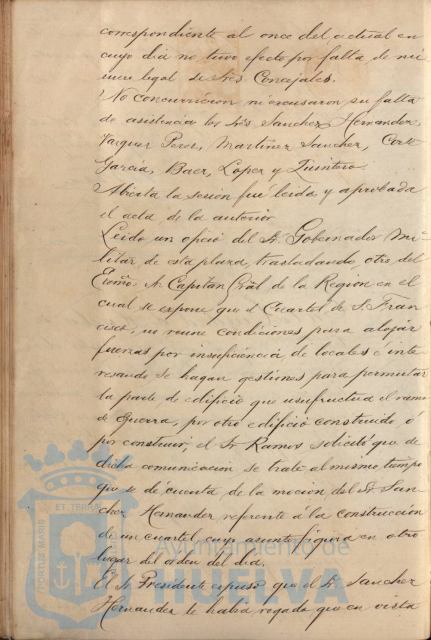 correspondiente al once del actual en
cuyo dia no tuvo efecto por falta de nú
mero legal de Sres Concejales.
No concurrieron ni excusaron su falta
de asistencia los Sres Sanchez Hernandez,
Vazquez Perez, Martinez Sanchez, Corte
Garcia, Baez, Lopez y Quintero
Abierta la sesion fué leida y aprobada
el acta de la anterior
Leido un oficio del Sr. Gobernador Mi-
litar de esta plaza, trasladando otro del
Excmo. Sr Capitan Gral de la Region en el
cual se expone que el Cuartel de S. Fran
cisco, no reune condiciones para alojar
fuerzas por insuficiencia de locales é inte
resando se hagan gestiones para permutar
la parte de edificio que usufructua el ramo
de Guerra, por otro edificio construido ó
por construir, el Sr Ramos solicitó que de
dicha comunicacion se trate al mismo tiempo
que se dé cuenta de la mocion del Sr San-
chez Hernandez referente á la construccion
de un cuartel cuyo asunto figura en otro
lugar del orden del dia.
El Sr Presidente expuso que el Sr. Sanchez
Hernandez le habia rogado que en vista
ET TERRA
PORTUS MARIS
Ayuntamiento de
HUELVA